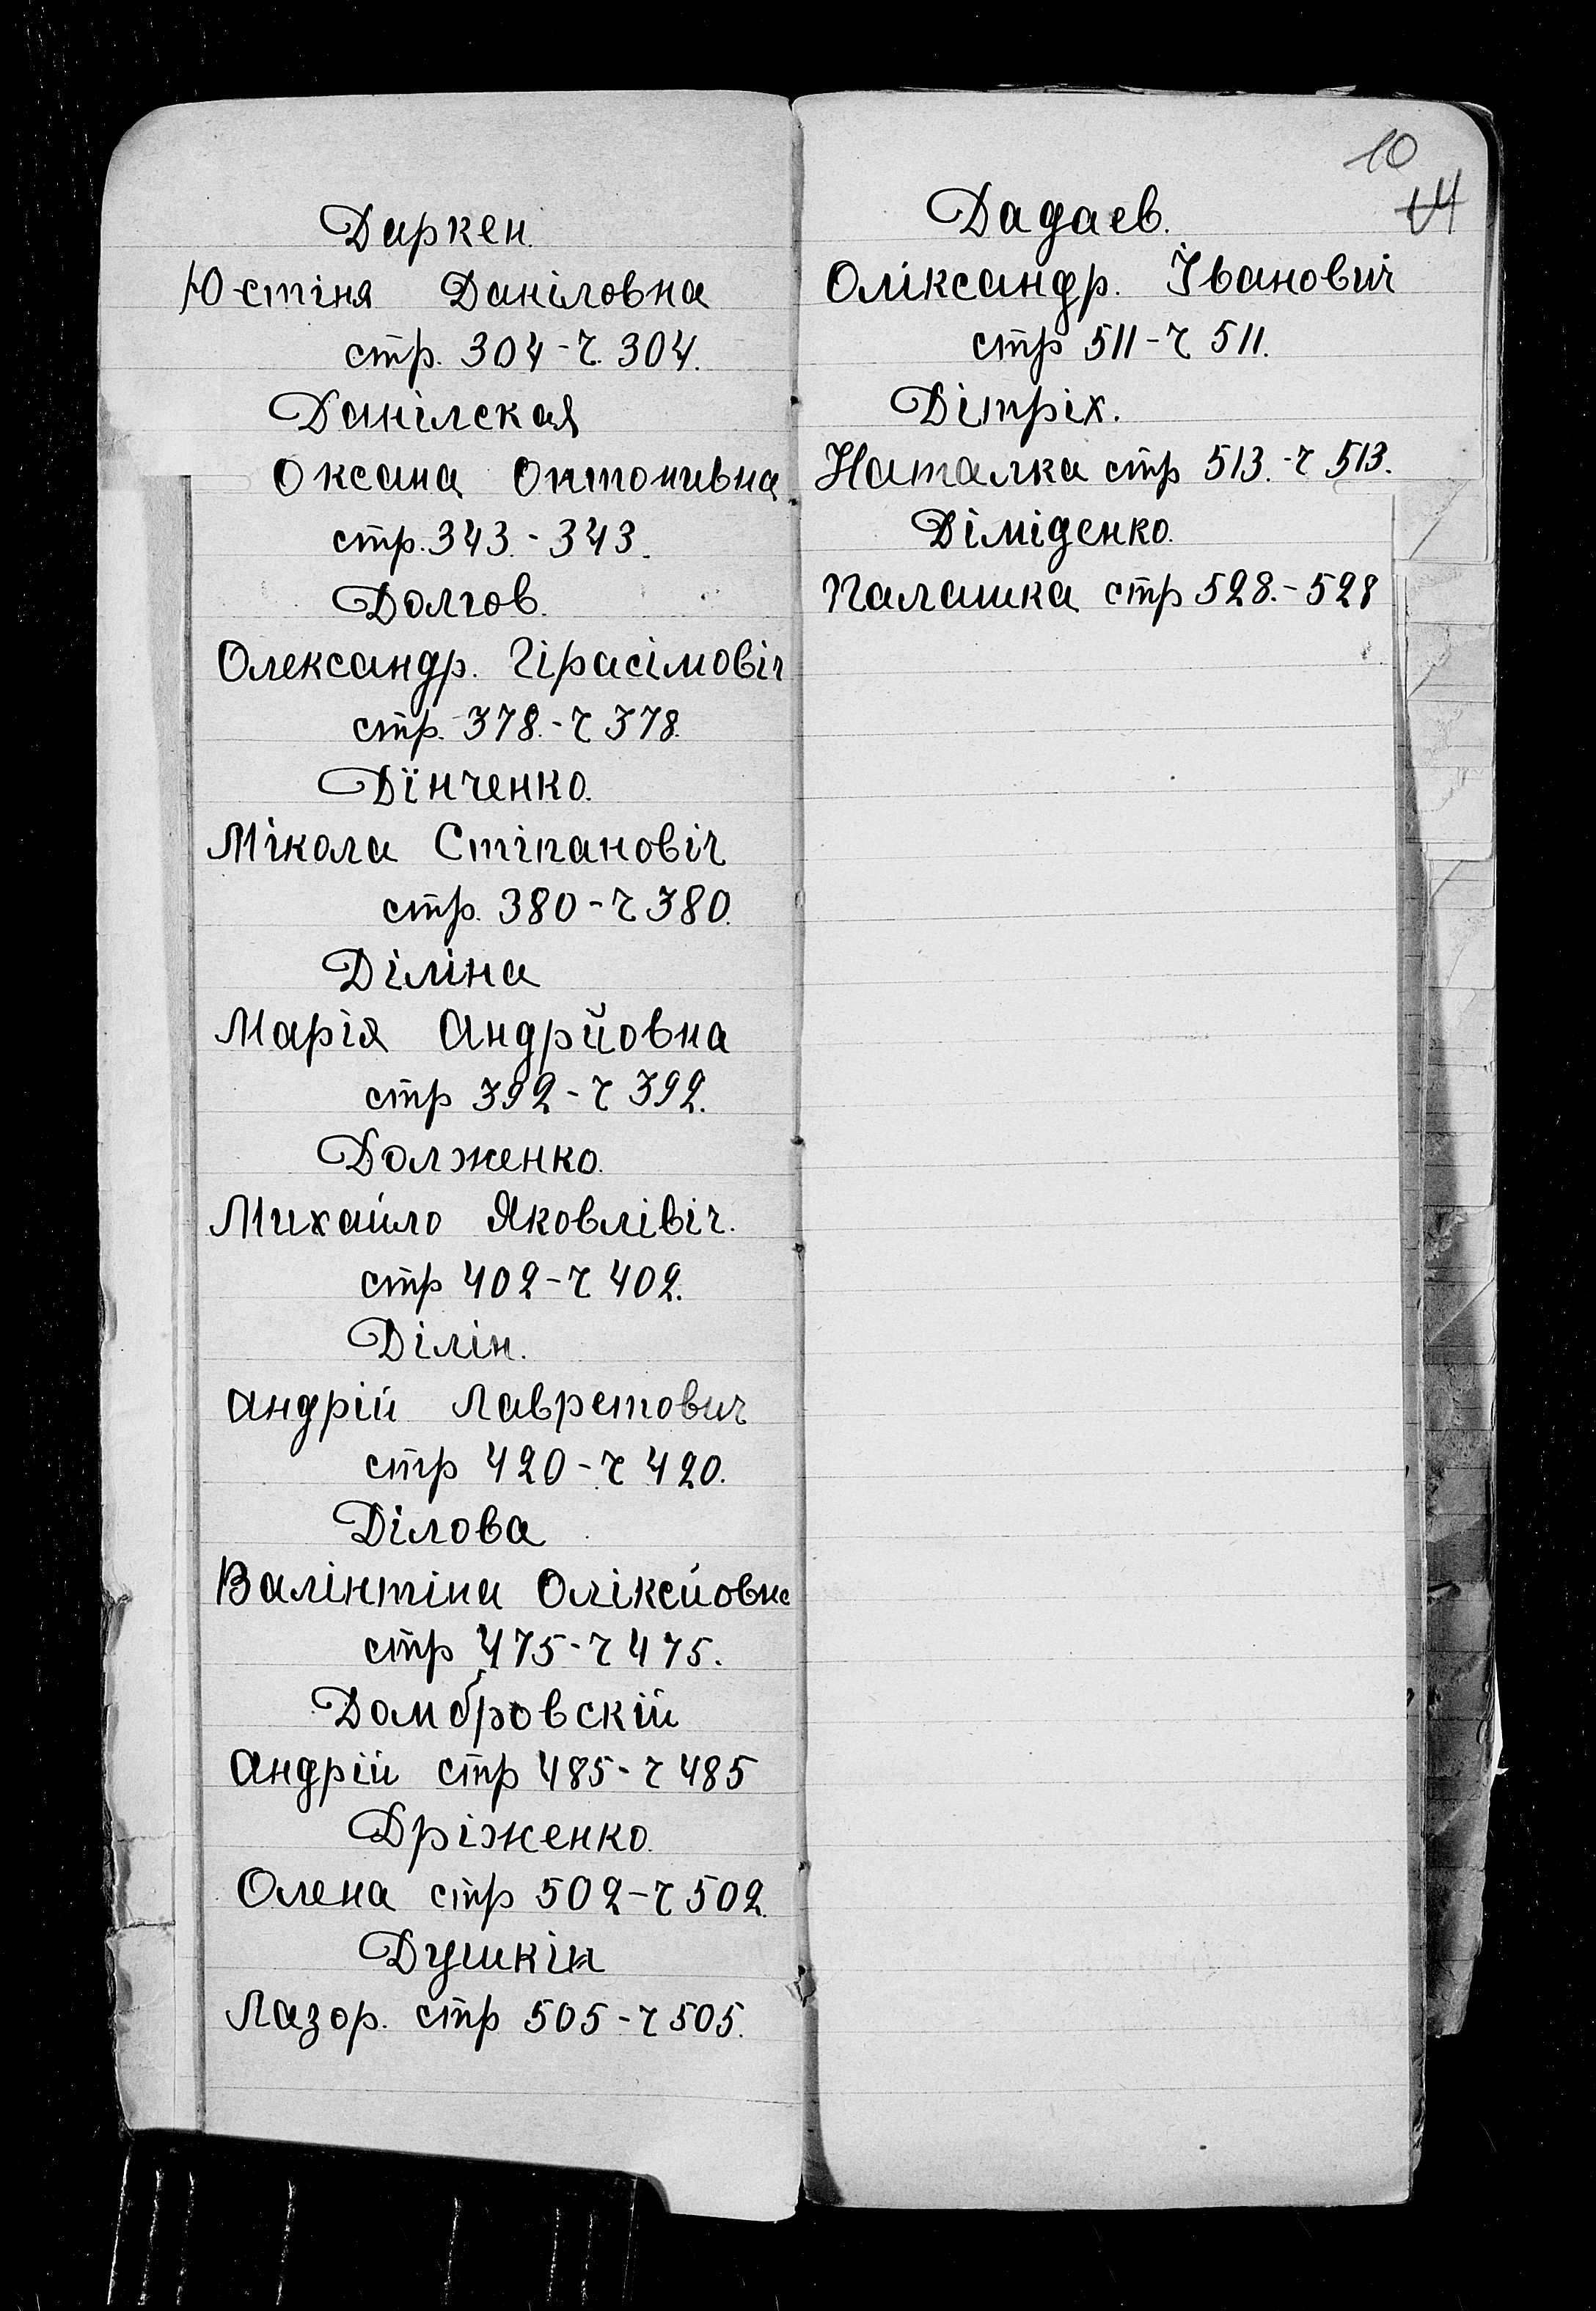 Даркен.
Юстіня Даніловна
стр. 304 - ч. 304.
Данілская
Оксана Онтонивна
стр. 343. - 343.
Долгов.
Олександр. Гірасімовіч
стр. 378. - ч 378.
Дїнченко.
Мікола Стіпановіч
стр. 380 - ч 380.
Діліна
Марія Андрйовна
стр 392 - ч 392.
Долженко.
Михайло Яковлівіч.
стр 402 - ч 402.
Ділін.
Андрій Лавретович
стр 420 - ч 420.
Ділова
Валінтіна Оліксйовна
стр 475 - ч 475.
Домбровскій
Андрій стр 485 - ч 485
Дріженко.
Олена стр 502 - ч 502.
Душкін
Лазор. стр 505 - ч 505.
10
14
Дадаев.
Оліксандр. Іванович
стр 511 - ч 511.
Дітріх.
Наталка стр 513. - ч 513.
Діміденко.
Палашка стр 528. - 528